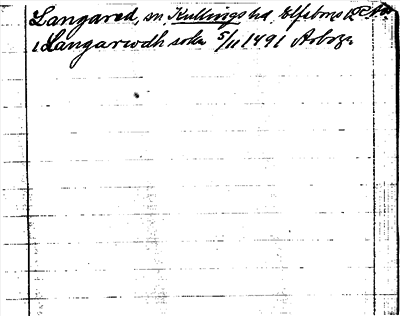 Langared, sn. Kullings hd. Elfsborgs
i Langarwdh sokn 5/11 1491 Arboga